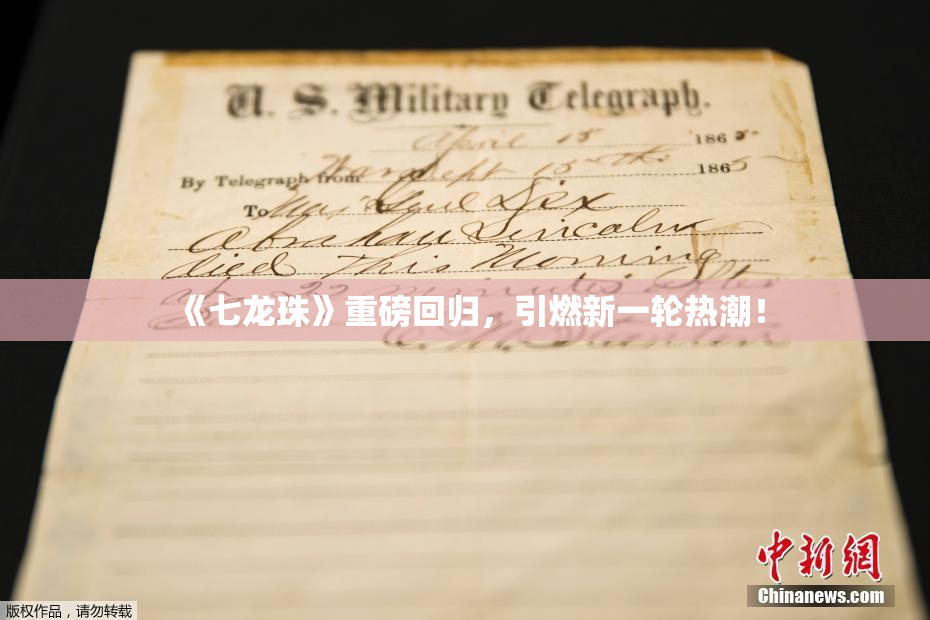 U. S. Military Telegraph.
April 15 1865
By Telegraph from War Dept 15th 1865
To Maj Genl Dix
Abraham Lincoln
died This Morning
at 22 minutes after
《七龙珠》重磅回归，引燃新一轮热潮！
E. M. Stanton
中新网
Chinanews.com
版权作品，请勿转载